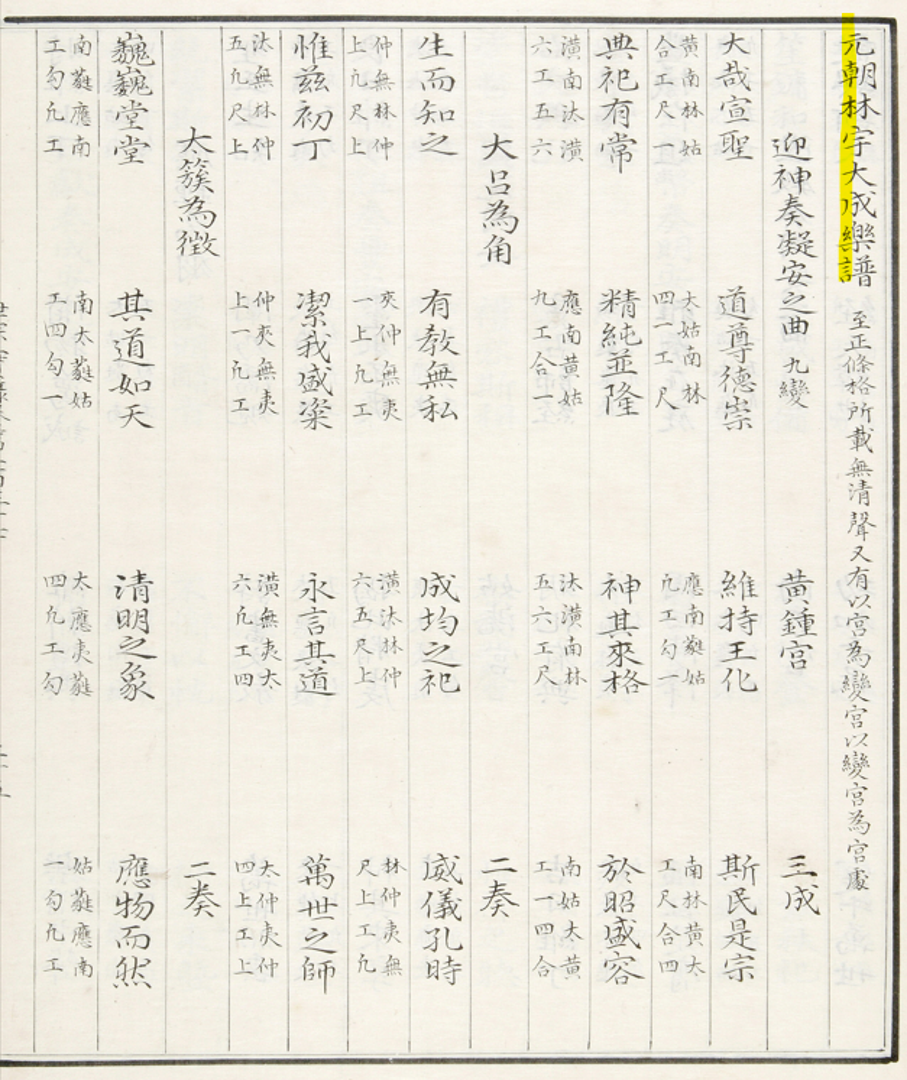 元朝林宇大成樂譜 至正條格所載無清聲又有以宮為變宮以變宮為宮處
迎神奏凝安之曲 九變 黃鍾宮 三成
大哉宣聖 道尊德崇 維持王化 斯民是宗
黃南林姑 太姑南林 應南蕤姑 南林黃太
合工尺一 四一工尺 凡工勾一 工尺合四
典祀有常 精純並隆 神其來格 於昭盛容
潢南汰潢 應南黃姑 汰潢南林 南姑太黃
六工五六 凡工合一 五六工尺 工一四合
大呂為角 二奏
生而知之 有教無私 成均之祀 威儀孔時
仲無林仲 夾仲無夷 潢汰林仲 林仲夷無
上凡尺上 一上凡工 六五尺上 尺上工凡
惟茲初丁 潔我盛粢 永言其道 萬世之師
汰無林仲 仲夾無夷 潢無夷太 太仲夷仲
五凡尺上 上一凡工 六凡工四 四上工上
太簇為徵 二奏
巍巍堂堂 其道如天 清明之象 應物而然
南蕤應南 南太蕤姑 太應夷蕤 姑蕤應南
工勾凡工 工四勾一 四凡工勾 一勾凡工